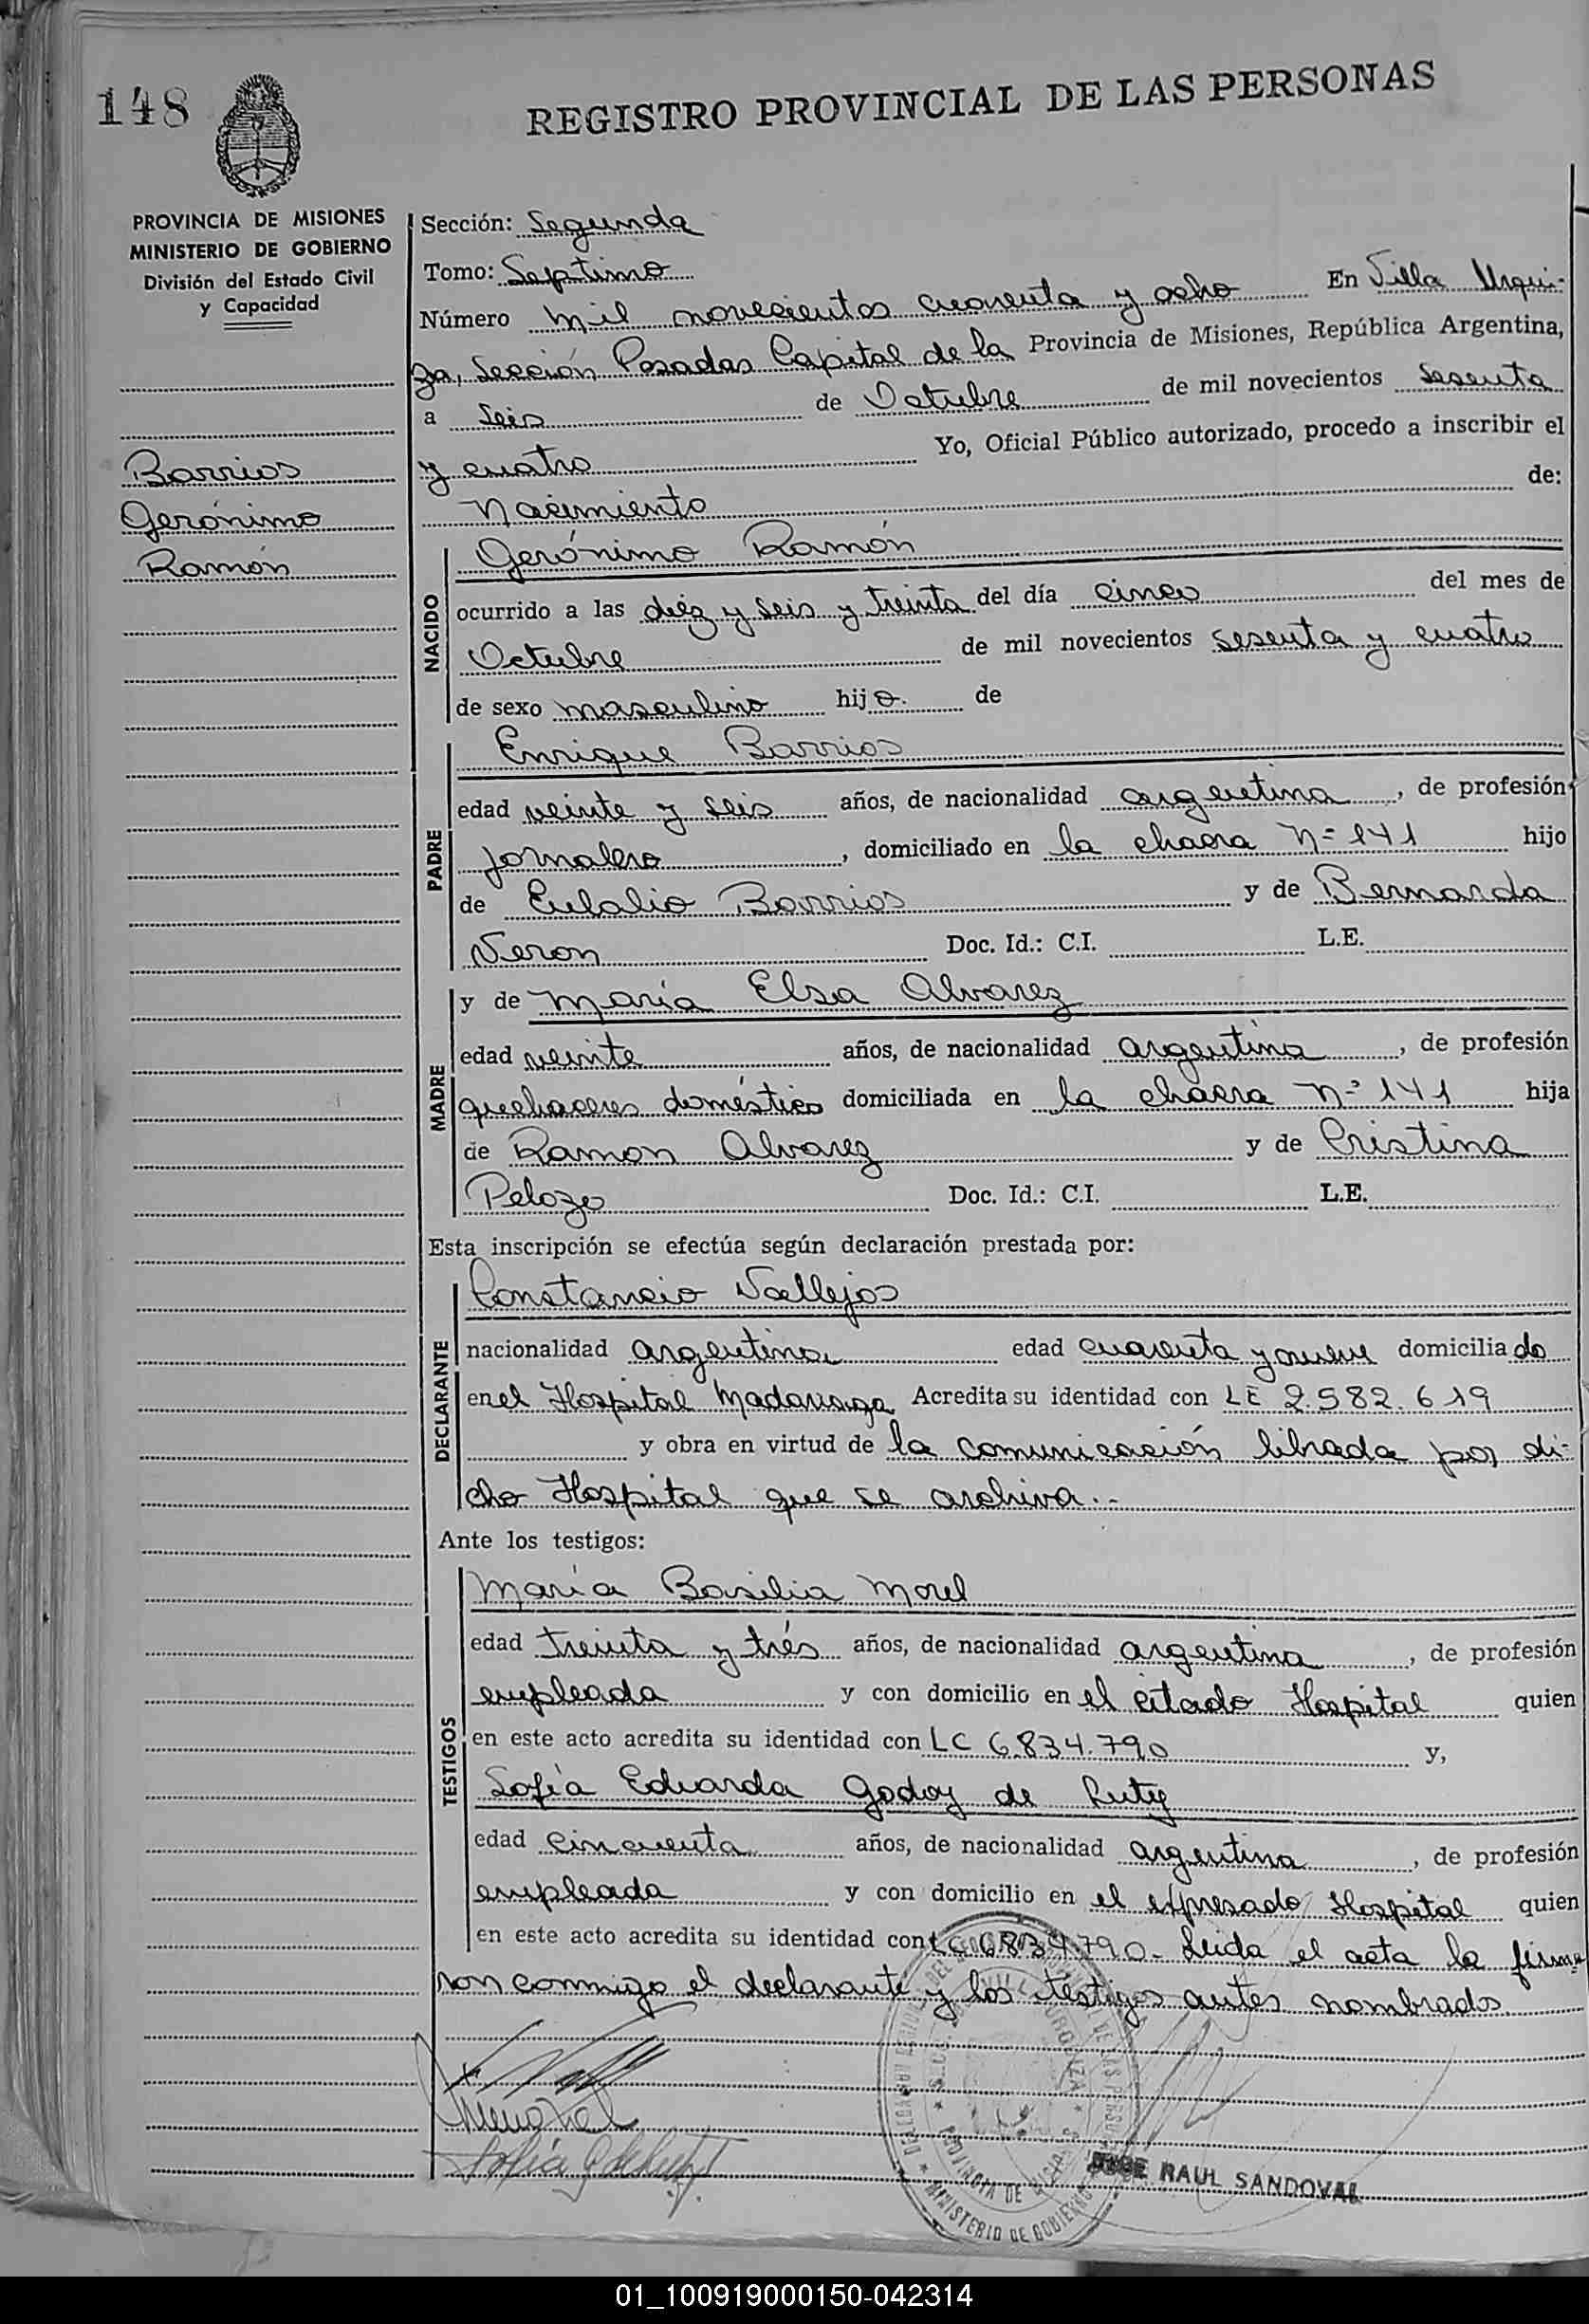 148
REGISTRO PROVINCIAL DE LAS PERSONAS
PROVINCIA DE MISIONES
MINISTERIO DE GOBIERNO
División del Estado Civil
y Capacidad
Barrios
Gerónimo
Ramón
Sección: Segunda
Tomo: Septimo
Número mil novecientos cuarenta y ocho En Villa Urqui-
za, Sección Posadas Capital de la Provincia de Misiones, República Argentina,
a seis de Octubre de mil novecientos sesenta
y cuatro Yo, Oficial Público autorizado, procedo a inscribir el
Nacimiento de:
NACIDO
Gerónimo Ramón
ocurrido a las diez y seis y treinta del día cinco del mes de
Octubre de mil novecientos sesenta y cuatro
de sexo masculino hijo. de
PADRE
Enrique Barrios
edad veinte y seis años, de nacionalidad argentina, de profesión
jornalero, domiciliado en la chacra N= 141 hijo
de Eulalio Barrios y de Bernarda
Veron Doc. Id.: C.I. L.E.
MADRE
y de María Elsa Alvarez
edad veinte años, de nacionalidad argentina, de profesión
quehaceres doméstico domiciliada en la chacra Nº 141 hija
de Ramon Alvarez y de Cristina
Pelozo Doc. Id.: C.I. L.E.
Esta inscripción se efectúa según declaración prestada por:
DECLARANTE
Constancio Vallejos
nacionalidad argentina edad cuarenta y nueve domiciliado
en el Hospital Madariaga Acredita su identidad con LE 2.582.619
y obra en virtud de la comunicación librada por di-
cho Hospital que se archiva.-
Ante los testigos:
TESTIGOS
María Basilia Morel
edad treinta y trés años, de nacionalidad argentina, de profesión
empleada y con domicilio en el citado Hospital quien
en este acto acredita su identidad con LC 6.834.790 y,
Sofía Eduarda Godoy de
edad cincuenta años, de nacionalidad argentina, de profesión
empleada y con domicilio en el expresado Hospital quien
en este acto acredita su identidad con LC 6834.790- Leida el acta la firma
ron conmigo el declarante y los testigos antes nombrados
PROVINCIA DE
MINISTERIO DE GOBIERNO
RAUL SANDOVAL
01_100919000150-042314